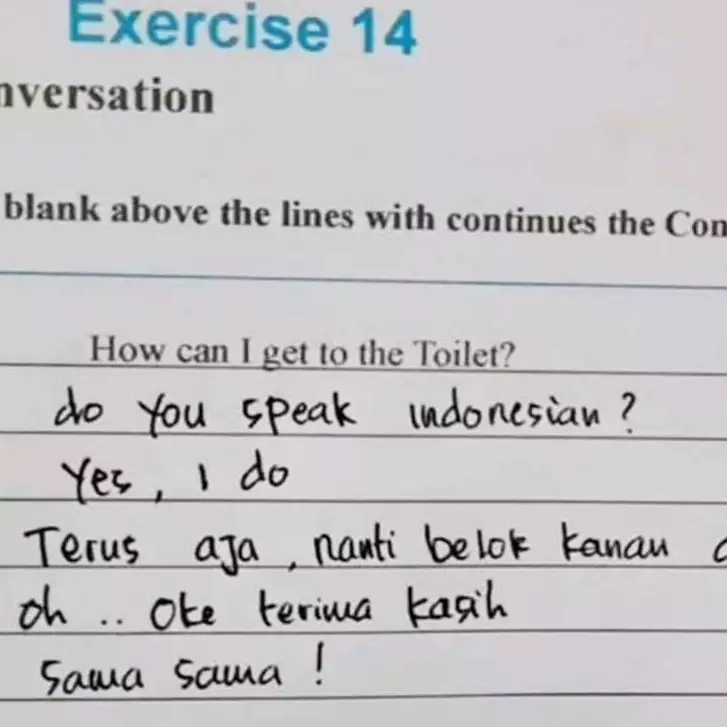 Exercise 14
nversation
blank above the lines with continues the Con
How can I get to the Toilet?
do you speak indonesian ?
Yes, I do
Terus aja, nanti belok kanan
oh .. oke terima kasih
Sama sama !